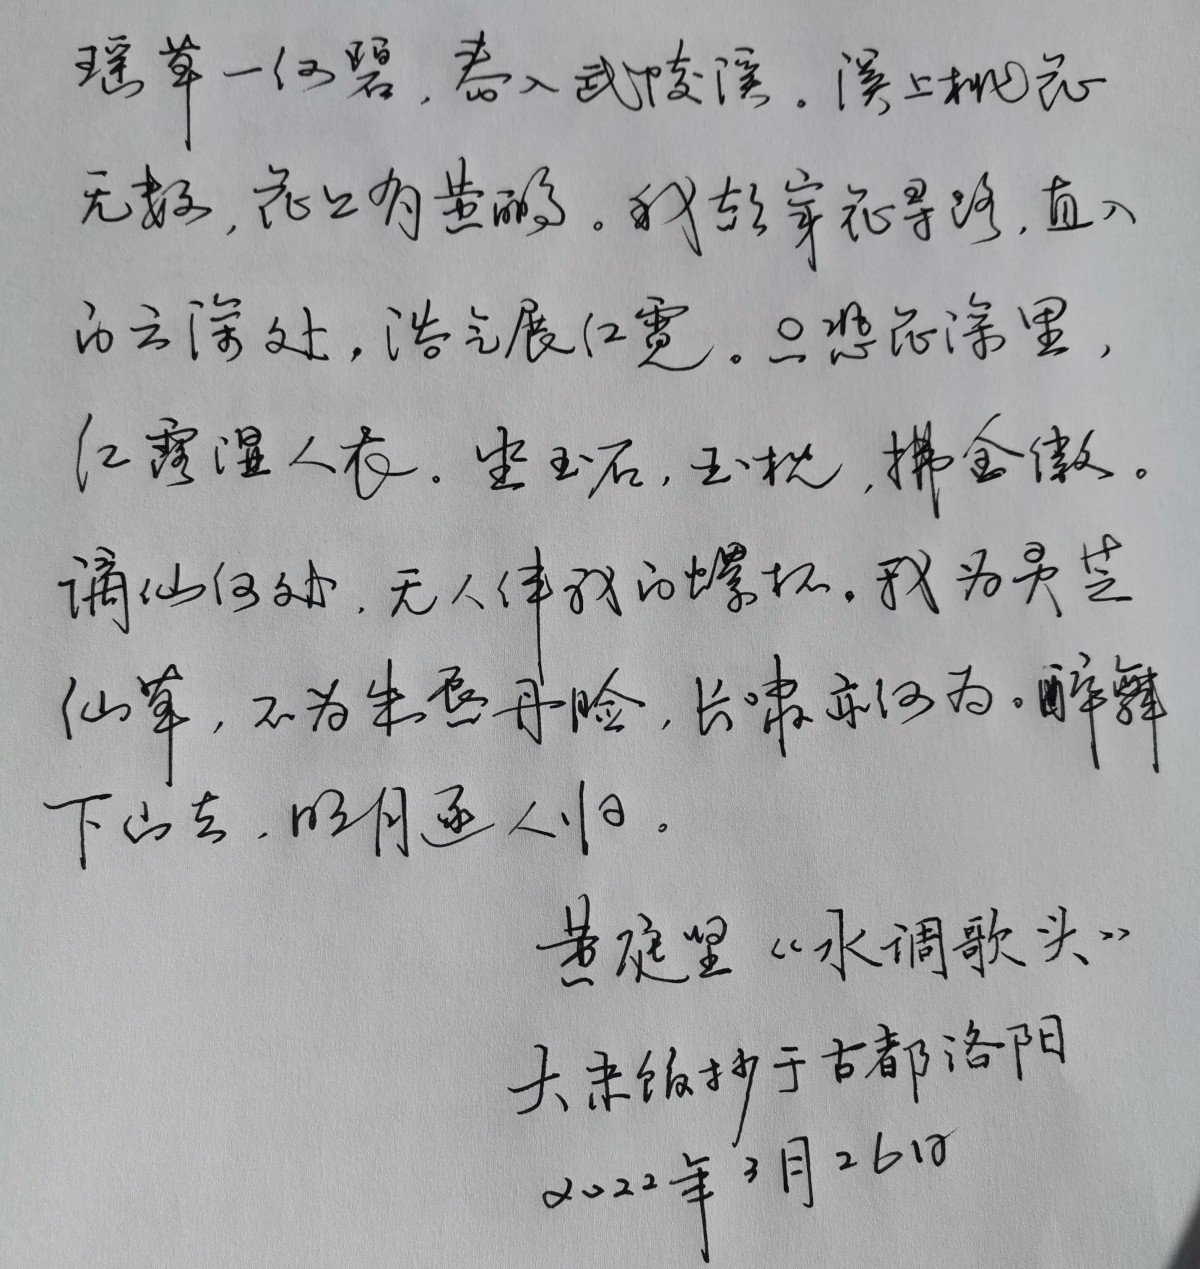 瑶草一何碧，春入武陵溪。溪上桃花
无数，花上有黄鹂。我欲穿花寻路，直入
白云深处，浩气展虹霓。只恐花深里，
红露湿人衣。坐玉石，玉枕，拂金徽。
谪仙何处，无人伴我白螺杯。我为灵芝
仙草，不为朱唇丹脸，长啸亦何为。醉舞
下山去，明月逐人归。
黄庭坚《水调歌头》
大米饭抄于古都洛阳
2022年3月26日